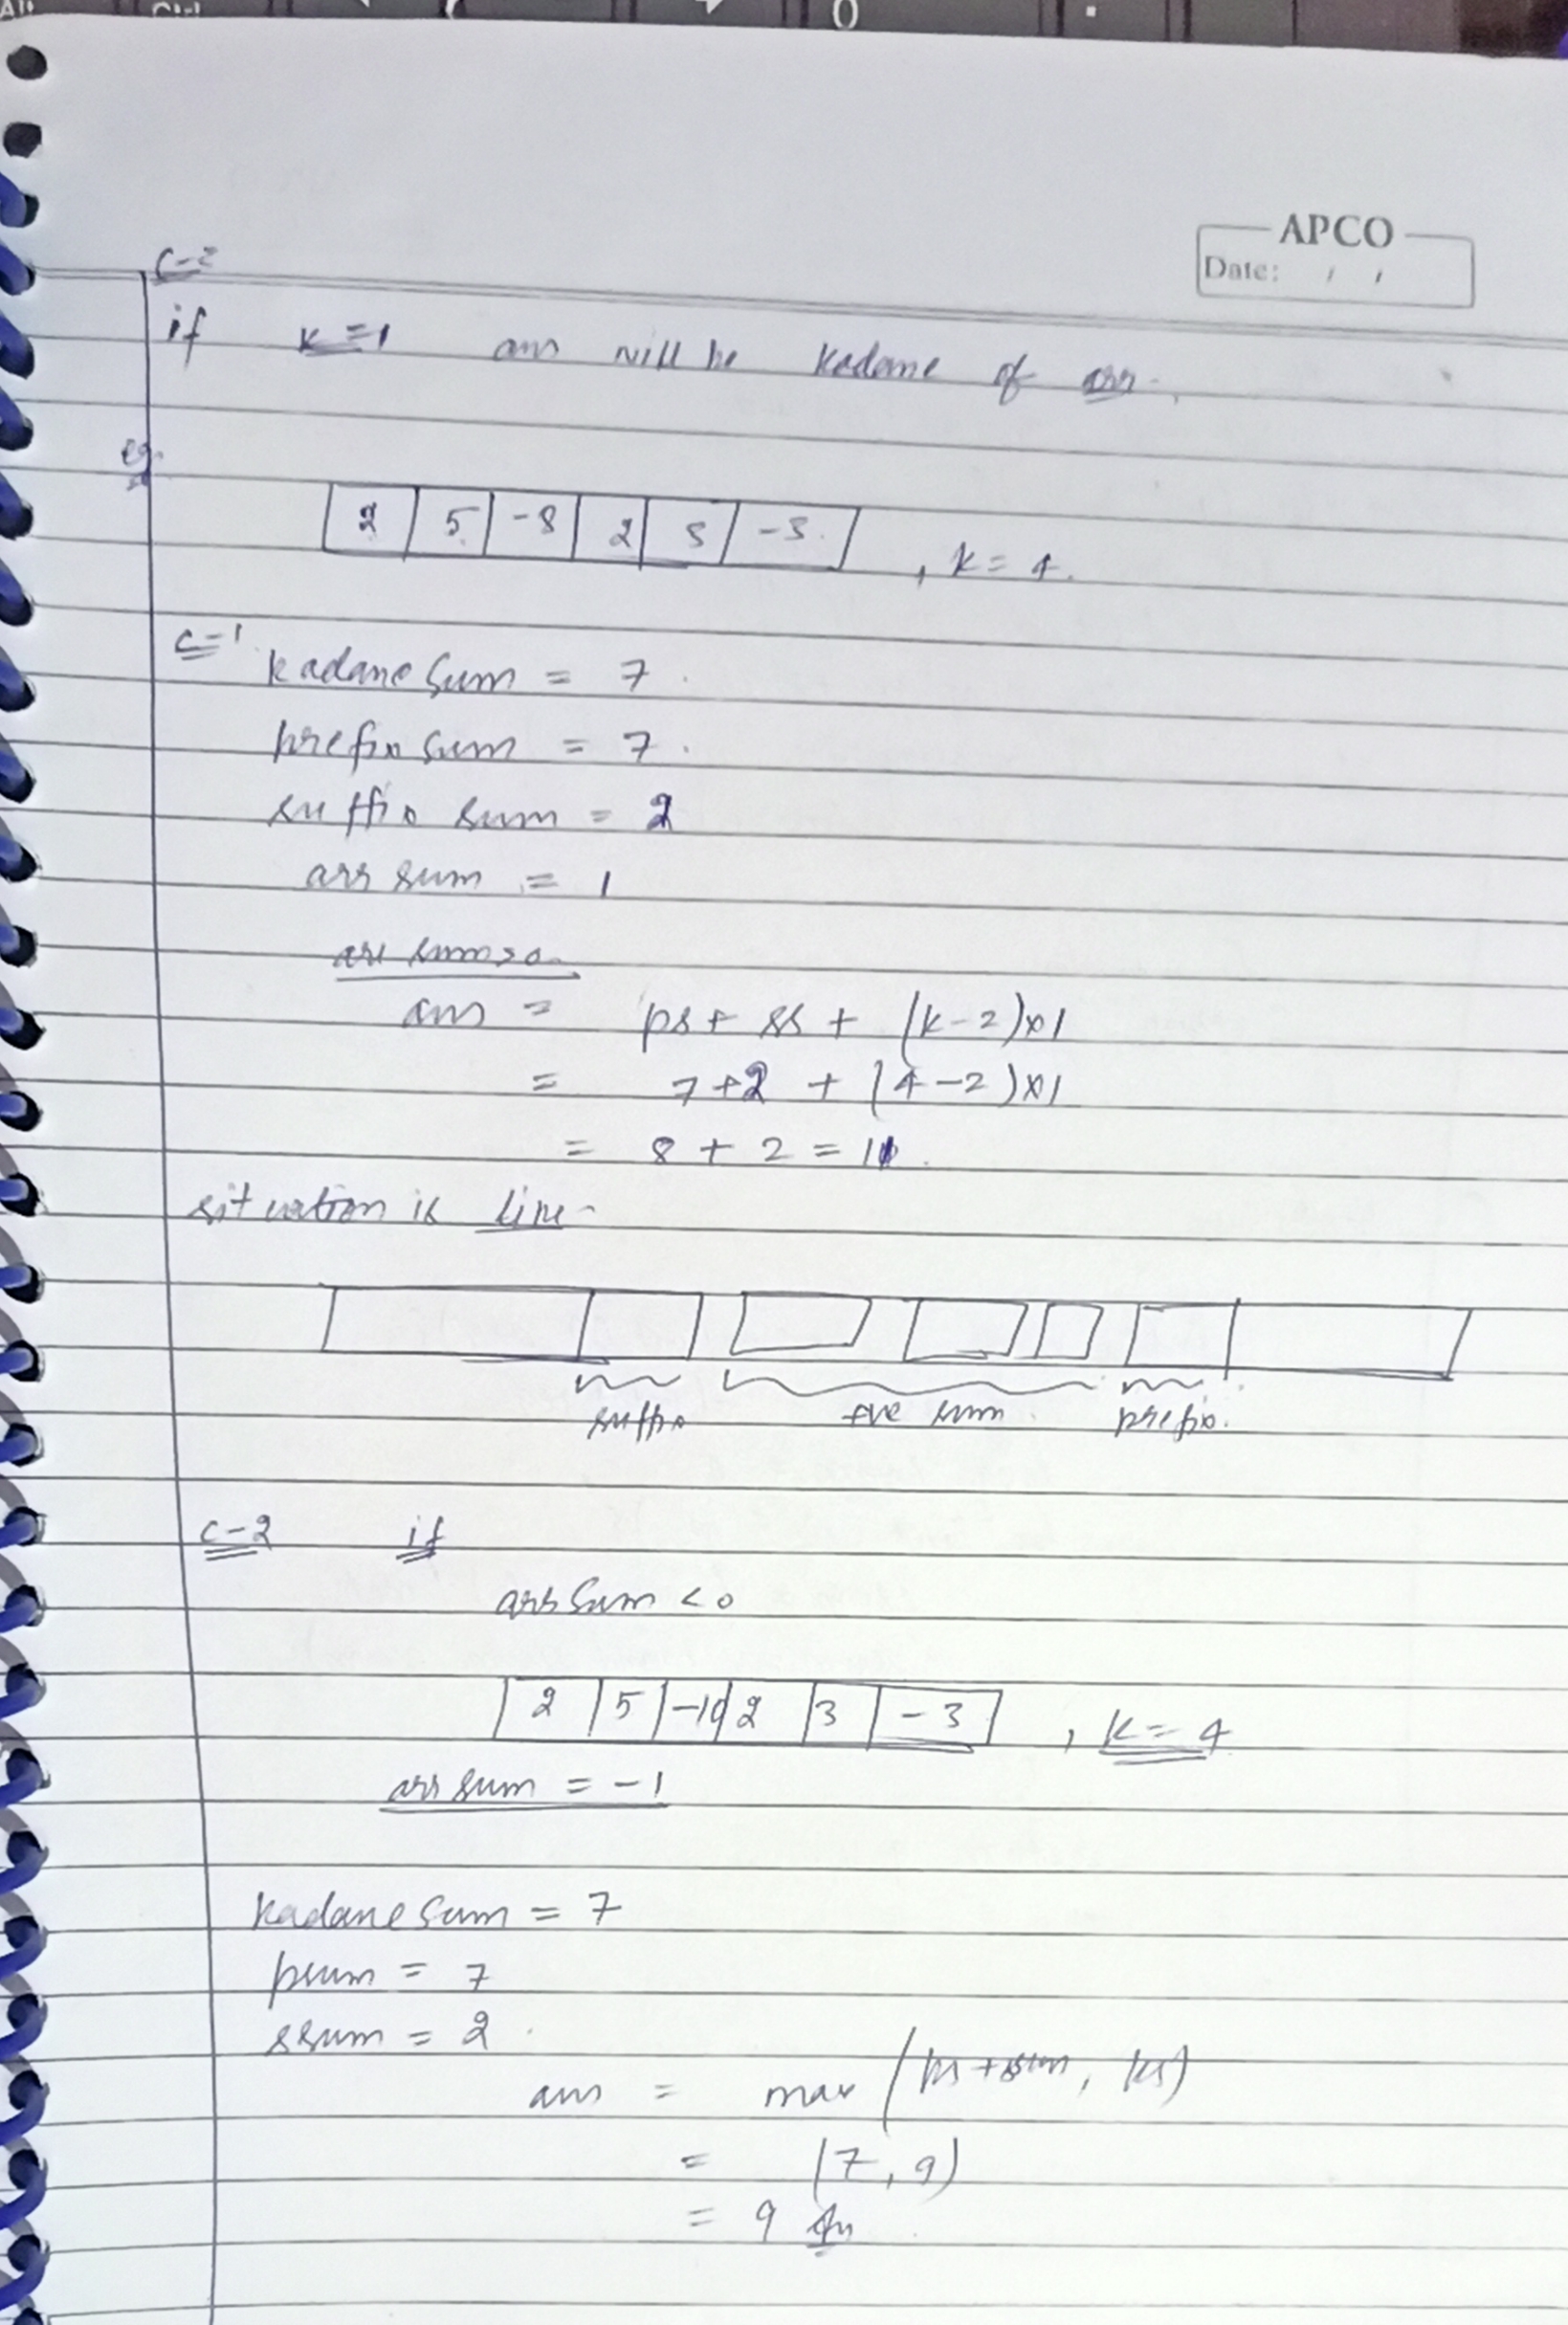 APCO
Date: / /
C-2
if k=1 ans will be kadane of arr.
eg.
2 5 -8 2 3 -3 , k = 4.
C-1
kadane sum = 7.
prefix sum = 7.
suffix sum = 2
arr sum = 1
arr sum>0
ans = ps + ss + (k-2)x1
= 7+2 + (4-2)x1
= 8 + 2 = 11.
situation is like-
suffix +ve sum prefix.
C-2 if
arr Sum < 0
2 5 -10 2 3 -3 , k = 4
arr sum = -1
kadane sum = 7
psum = 7
ssum = 2
ans = max ( , ks)
= (7, 9)
= 9